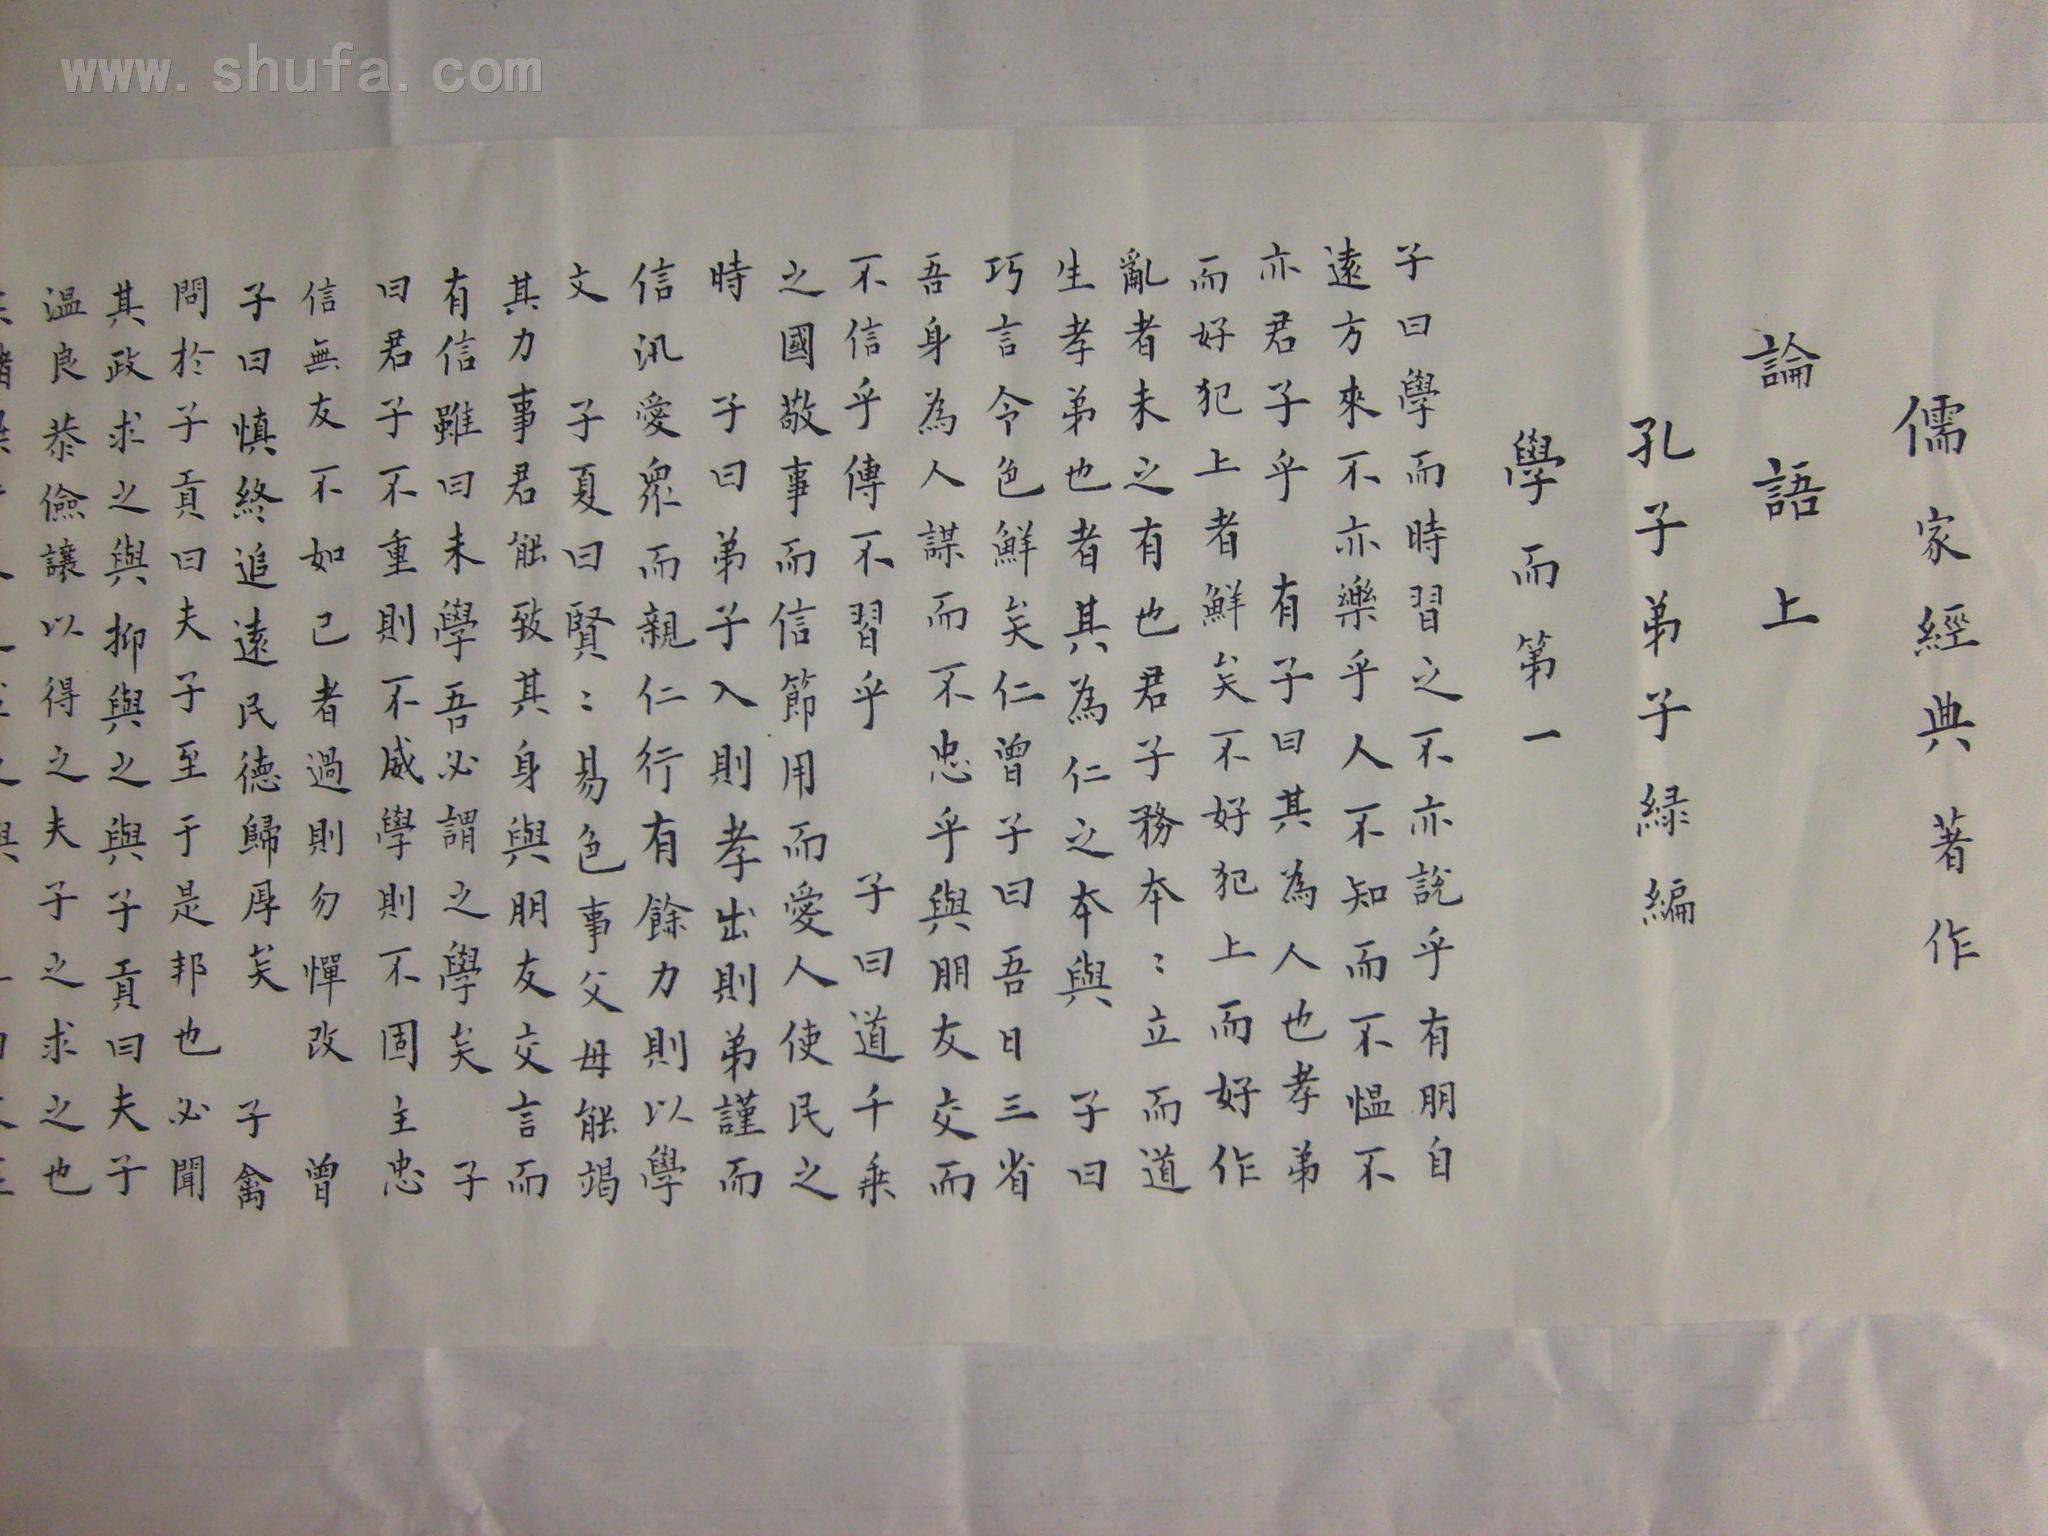 www.shufa.com
儒家經典著作
論語上
孔子弟子緑編
學而第一
子曰學而時習之不亦說乎有朋自
遠方來不亦樂乎人不知而不愠不
亦君子乎 有子曰其為人也孝弟
而好犯上者鮮矣不好犯上而好作
亂者未之有也君子務本:立而道
生孝弟也者其為仁之本與 子曰
巧言令色鮮矣仁曾子曰吾日三省
吾身為人謀而不忠乎與朋友交而
不信乎傳不習乎 子曰道千乘
之國敬事而信節用而愛人使民之
時 子曰弟子入則孝出則弟謹而
信汎愛衆而親仁行有餘力則以學
文 子夏曰賢:易色事父母能竭
其力事君能致其身與朋友交言而
有信雖曰未學吾必謂之學矣 子
曰君子不重則不威學則不固主忠
信無友不如己者過則勿憚改 曾
子曰慎終追遠民德歸厚矣 子禽
問於子貢曰夫子至于是邦也必聞
其政求之與抑與之與子貢曰夫子
温良恭儉讓以得之夫子之求之也